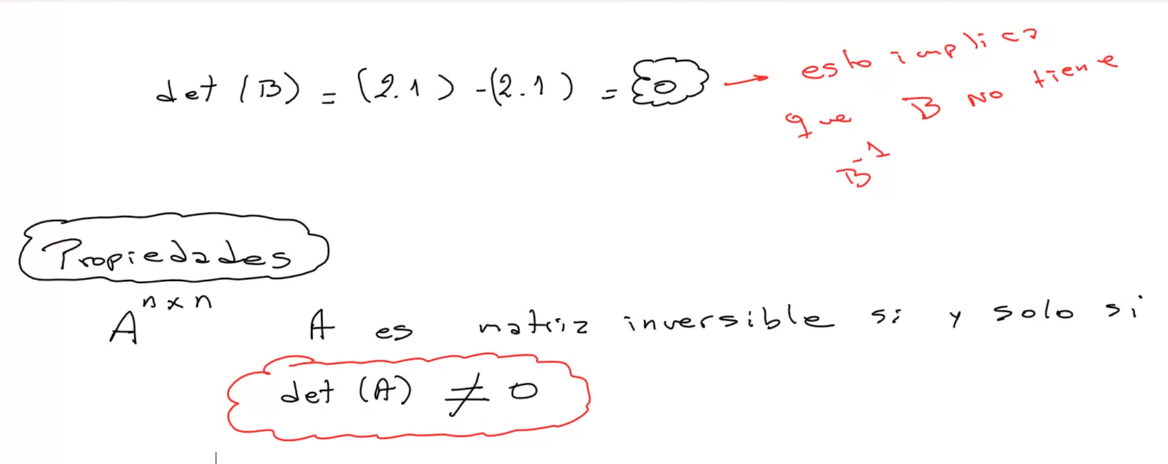 det (B) = (2.1) - (2.1) = 0 → esto implica
que B no tiene
B⁻¹
Propiedades
Aⁿˣⁿ A es matriz inversible si y solo si
det (A) ≠ 0